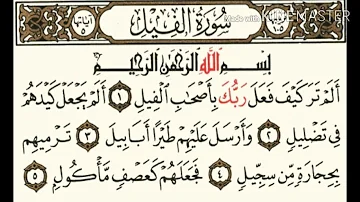 سُورَةُ الفِيلِ
آياتها ٥
Made with KINEMASTER
بِسْمِ اللَّهِ الرَّحْمَٰنِ الرَّحِيمِ
أَلَمْ تَرَ كَيْفَ فَعَلَ رَبُّكَ بِأَصْحَٰبِ الْفِيلِ ١ أَلَمْ يَجْعَلْ كَيْدَهُمْ
فِي تَضْلِيلٍ ٢ وَأَرْسَلَ عَلَيْهِمْ طَيْرًا أَبَابِيلَ ٣ تَرْمِيهِم
بِحِجَارَةٍ مِّن سِجِّيلٍ ٤ فَجَعَلَهُمْ كَعَصْفٍ مَّأْكُولٍ ٥